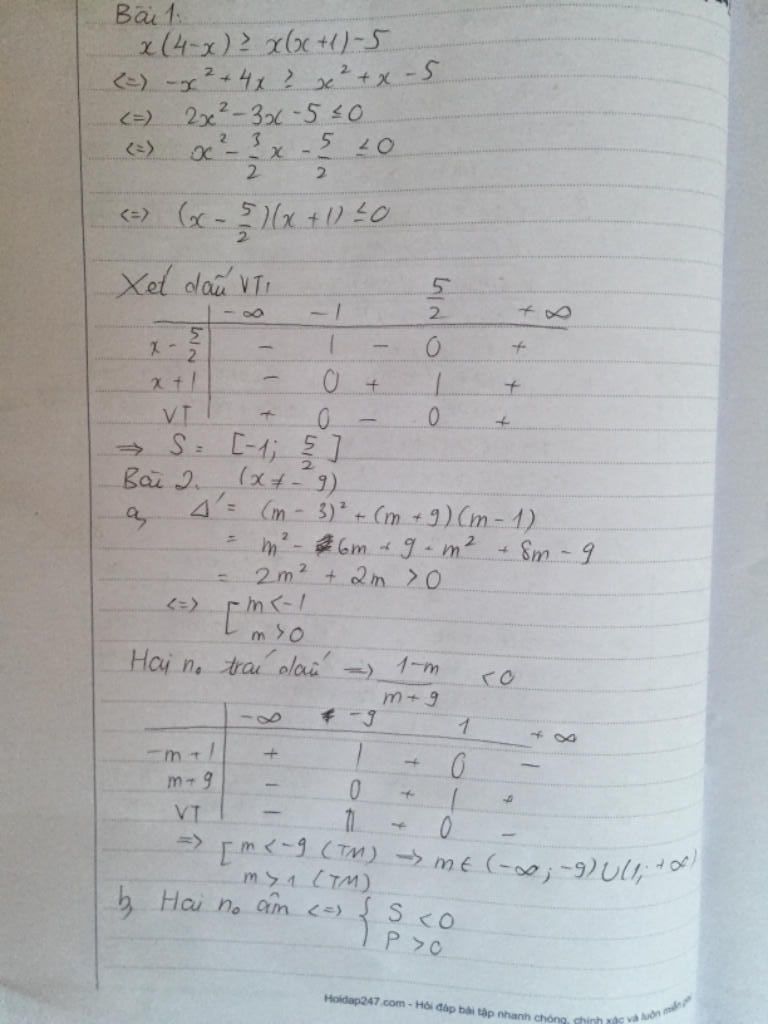 Bài 1:
x(4-x) ≥ x(x+1)-5
<=> -x²+4x ≥ x²+x-5
<=> 2x²-3x-5 ≤ 0
<=> x² - 3/2 x - 5/2 ≤ 0
<=> (x - 5/2)(x+1) ≤ 0
Xét dấu VT:
-∞ -1 5/2 +∞
x - 5/2 - | - 0 +
x+1 - 0 + | +
VT + 0 - 0 +
=> S = [-1; 5/2]
Bài 2. (x ≠ -9)
a, Δ' = (m-3)² + (m+9)(m-1)
= m² - 6m + 9 + m² + 8m - 9
= 2m² + 2m > 0
<=> [ m < -1
m > 0
Hai n₀ trái dấu => 1-m / m+9 < 0
-∞ -9 1 +∞
-m+1 + | + 0 -
m+9 - 0 + | +
VT - || + 0 -
=> [ m < -9 (TM) => m ∈ (-∞; -9) ∪ (1; +∞)
m > 1 (TM)
b, Hai n₀ âm <=> { S < 0
P > 0
Hoidap247.com - Hỏi đáp bài tập nhanh chóng, chính xác và luôn miễn phí